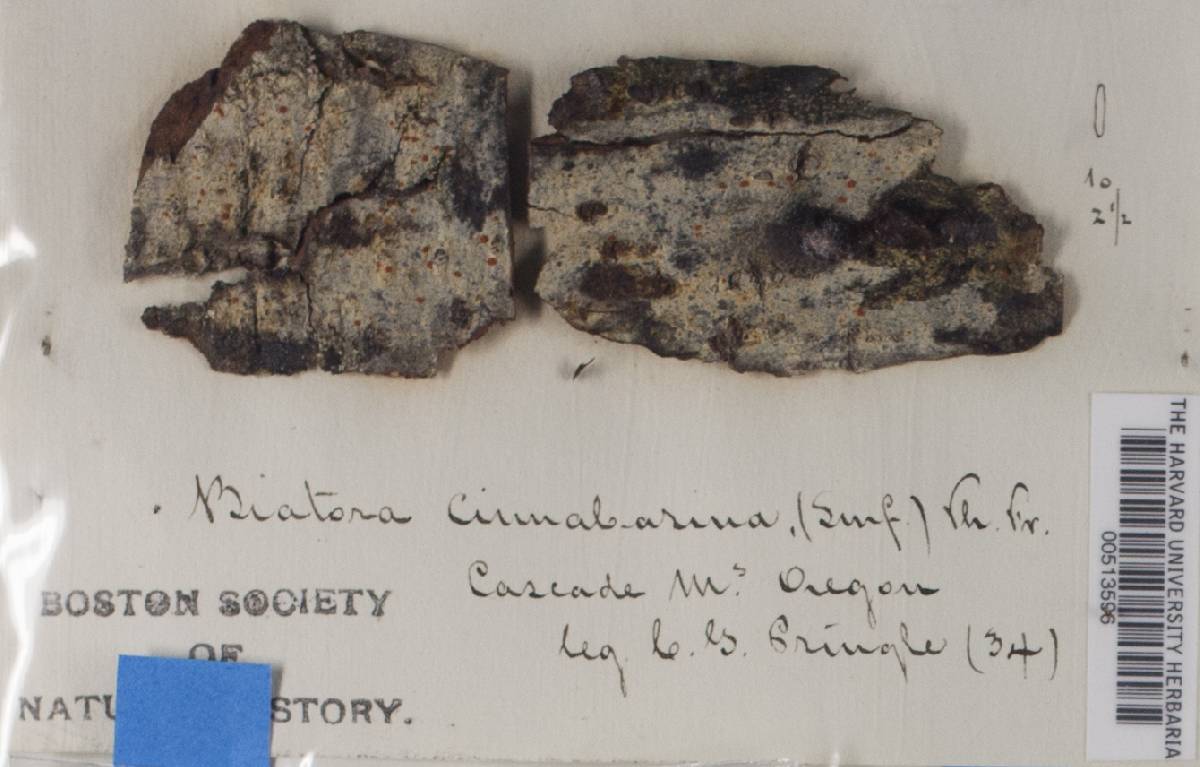 10
2 1/2
Biatora cinnabarina, (Smf.) Th. Fr.
Cascade Mts Oregon
leg. C. G. Pringle (34)
BOSTON SOCIETY
OF
NATU STORY.
THE HARVARD UNIVERSITY HERBARIA
00513596